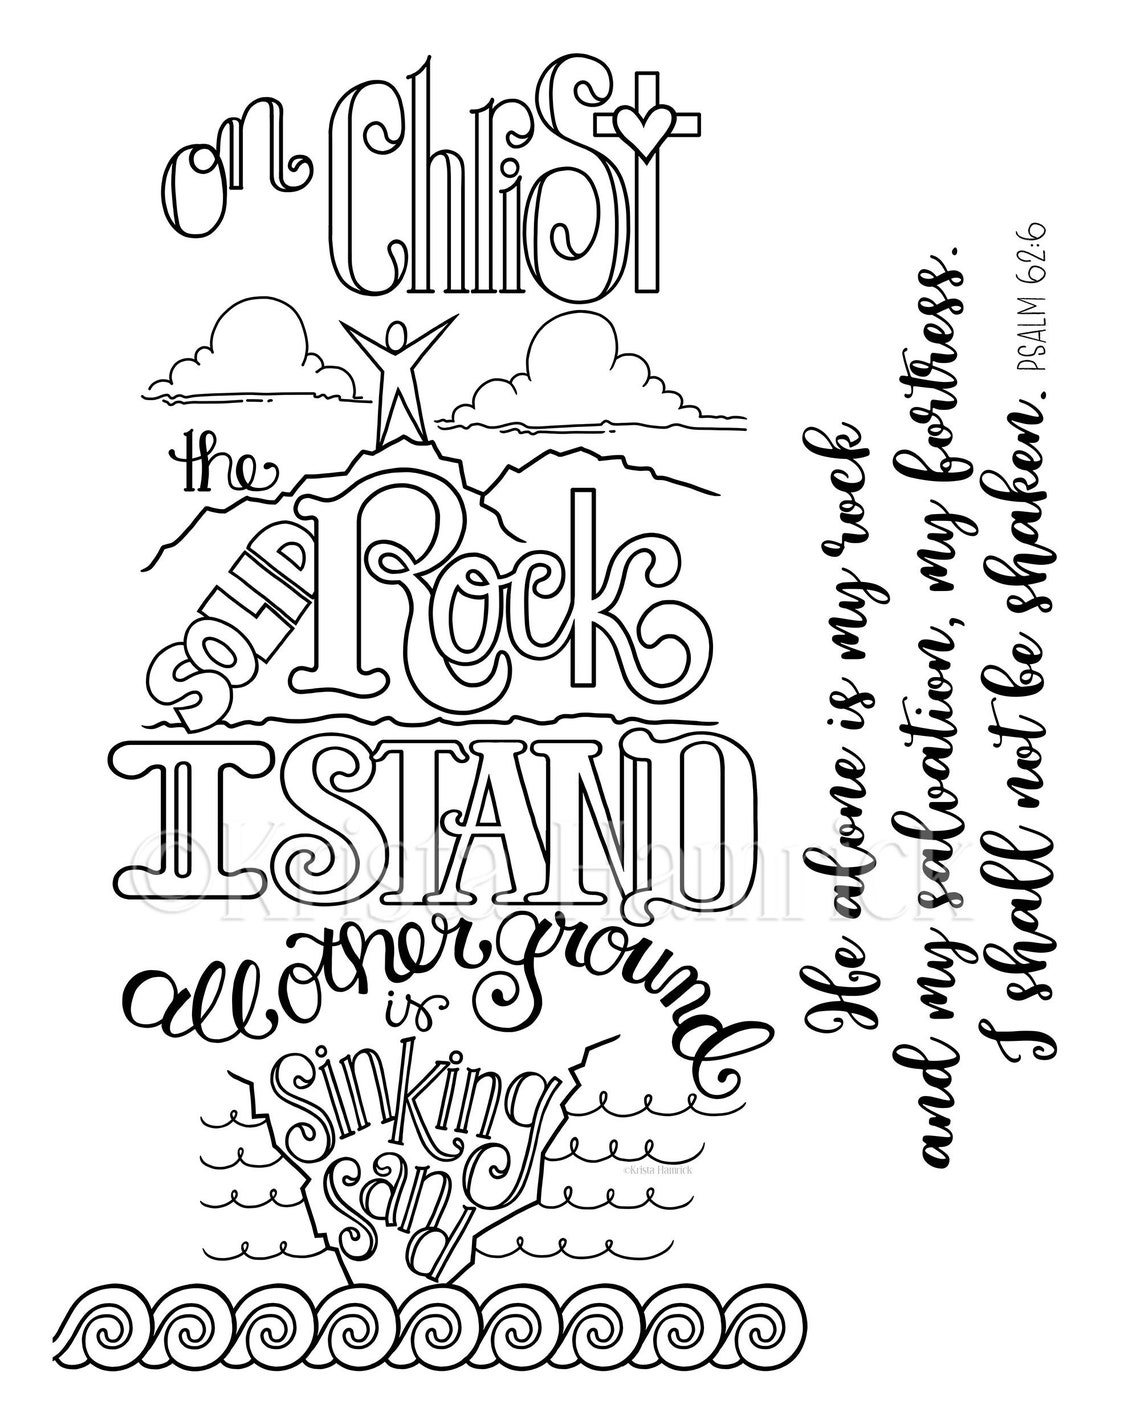 on Christ
the
SOLID
Rock
I STAND
all other ground
is
sinking
sand
He alone is my rock
and my salvation, my fortress.
I shall not be shaken. PSALM 62:6
©Krista Hamrick
©Krista Hamrick